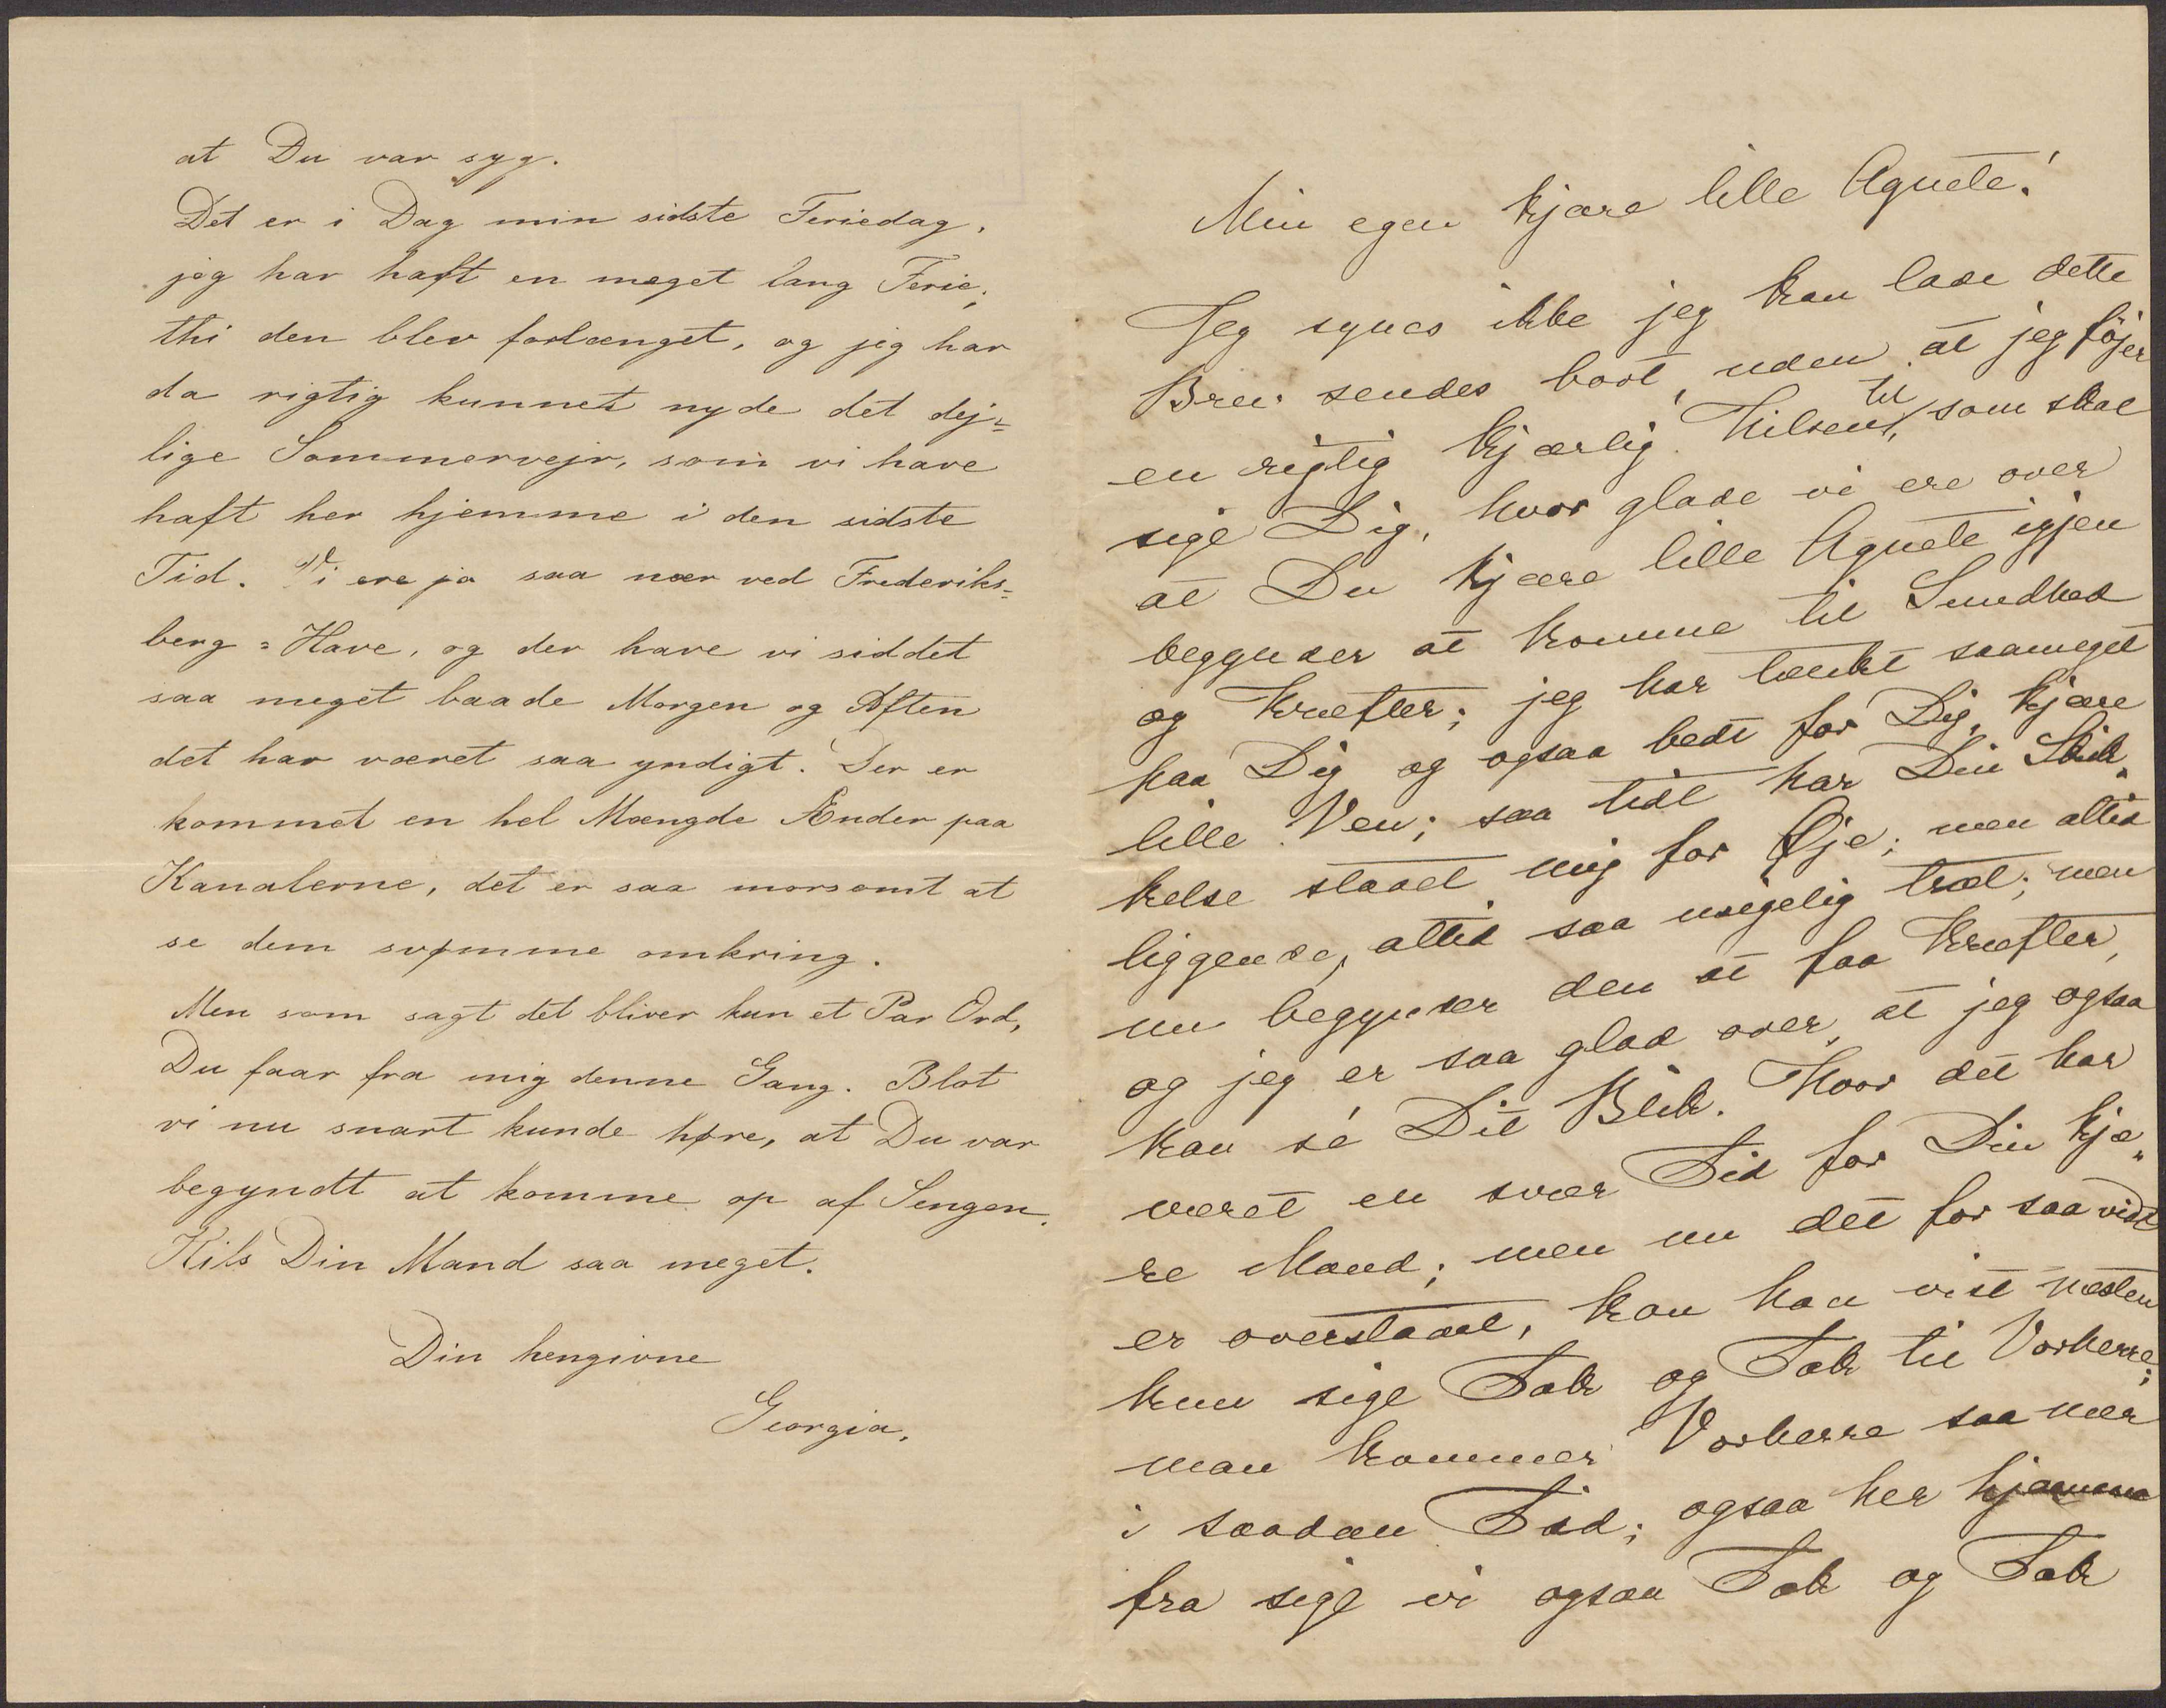 at Du var syg.
Det er i Dag min sidste Feriedag,
jeg har haft en meget lang Ferie;
thi den blev forlænget, og jeg har
da rigtig kunnet nyde det dej=
lige Sommervejr, som vi have
haft her hjemme i den sidste
Tid. Vi ere jo saa nær ved Frederiks=
berg=Have, og der have vi siddet
saa meget baade Morgen og Aften
det har været saa yndigt. Der er
kommet en hel Mængde Ænder paa
Kanalerne, det er saa morsomt at
se dem svømme omkring.
Men som sagt det bliver kun et Par Ord,
Du faar fra mig denne Gang. Blot
vi nu snart kunde høre, at Du var
begyndt at komme op af Sengen.
Hils Din Mand saa meget.
Din hengivne
Georgia.
Min egen kjære lille Agnete!
Jeg synes ikke jeg kan lade dette
Brev sendes bort, uden at jeg föjer
en rigtig kjærlig Hilsen til, som skal
sige Dig, hvor glade vi ere over
at Du kjære lille Agnete igjen
begynder at komme til Sundhed
og Kræfter; jeg har tænkt saameget
paa Dig og ogsaa bedt for Dig, kjære
lille Ven; saa tidt har Din Skik„
kelse staaet mig for Øje; men altid
liggende, altid saa usigelig træt; men
nu begynder den at faa Kræfter,
og jeg er saa glad over, at jeg ogsaa
kan sé Dit Blik. Hvor det har
været en svær Tid for Din kjæ„
re Mand; men nu det for saa vidt
er overstaaet, kan han vist næsten
kun sige Tak og Tak til Vorherre;
man kommer Vorherre saa nær
i saadan Tid; ogsaa her hjemme
fra sige vi ogsaa Tak og Tak